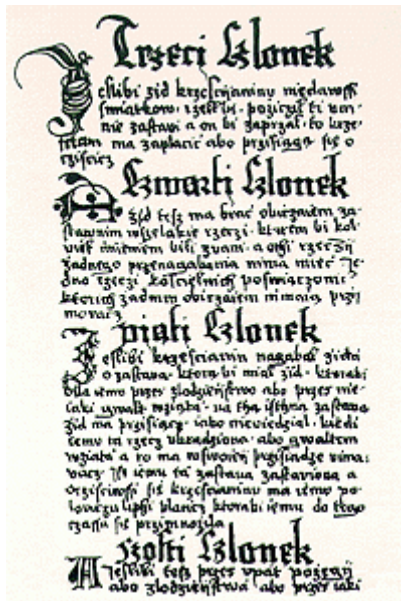 Trzeci Czlonek
Jeslibi zid krzescijaninu
smiatkow. rzekl bi. poziczil ti
nie zastavi a on bi zaprzal. to krze
ma zaplacic abo przisiąge się o
czisciez
Czwarti Czlonek
A zid tesz ma brac obiczaiem za
stawnim wszelakie rzeczi. ktorem bi kol
wiek imieniem bili zvani. a o tich rzeczij
żadnego przenagabania nima miec Je
dno rzeczi kościelnich posmiączonic
ktorich zadnim obiczaiem nimaią przij
movac
piąti Czlonek
Jeslibi krzescianin nagabal zida
o zastava. ktora bi mial zid. ktorabi
bila iemu przes zlodzieistwo abo przes nie
iaki gwalt wziąta. na tha isthna zastawa
zid ma przisiącz iako niewiedzial. kiedi
iemu ta rzecz ukradziona. abo gwaltem
wziąta a to ma wswoieij przisiądze
iemu ta zastava zastaviona a
sie krzescianinu ma iemu po
lowicza lijchi placz ktorabi iemu do tego
czassu sie przimnozila
szosti Czlonek
A Jeslibi tesz przes vpat pożogij
abo zlodzieistwa abo przes iaki